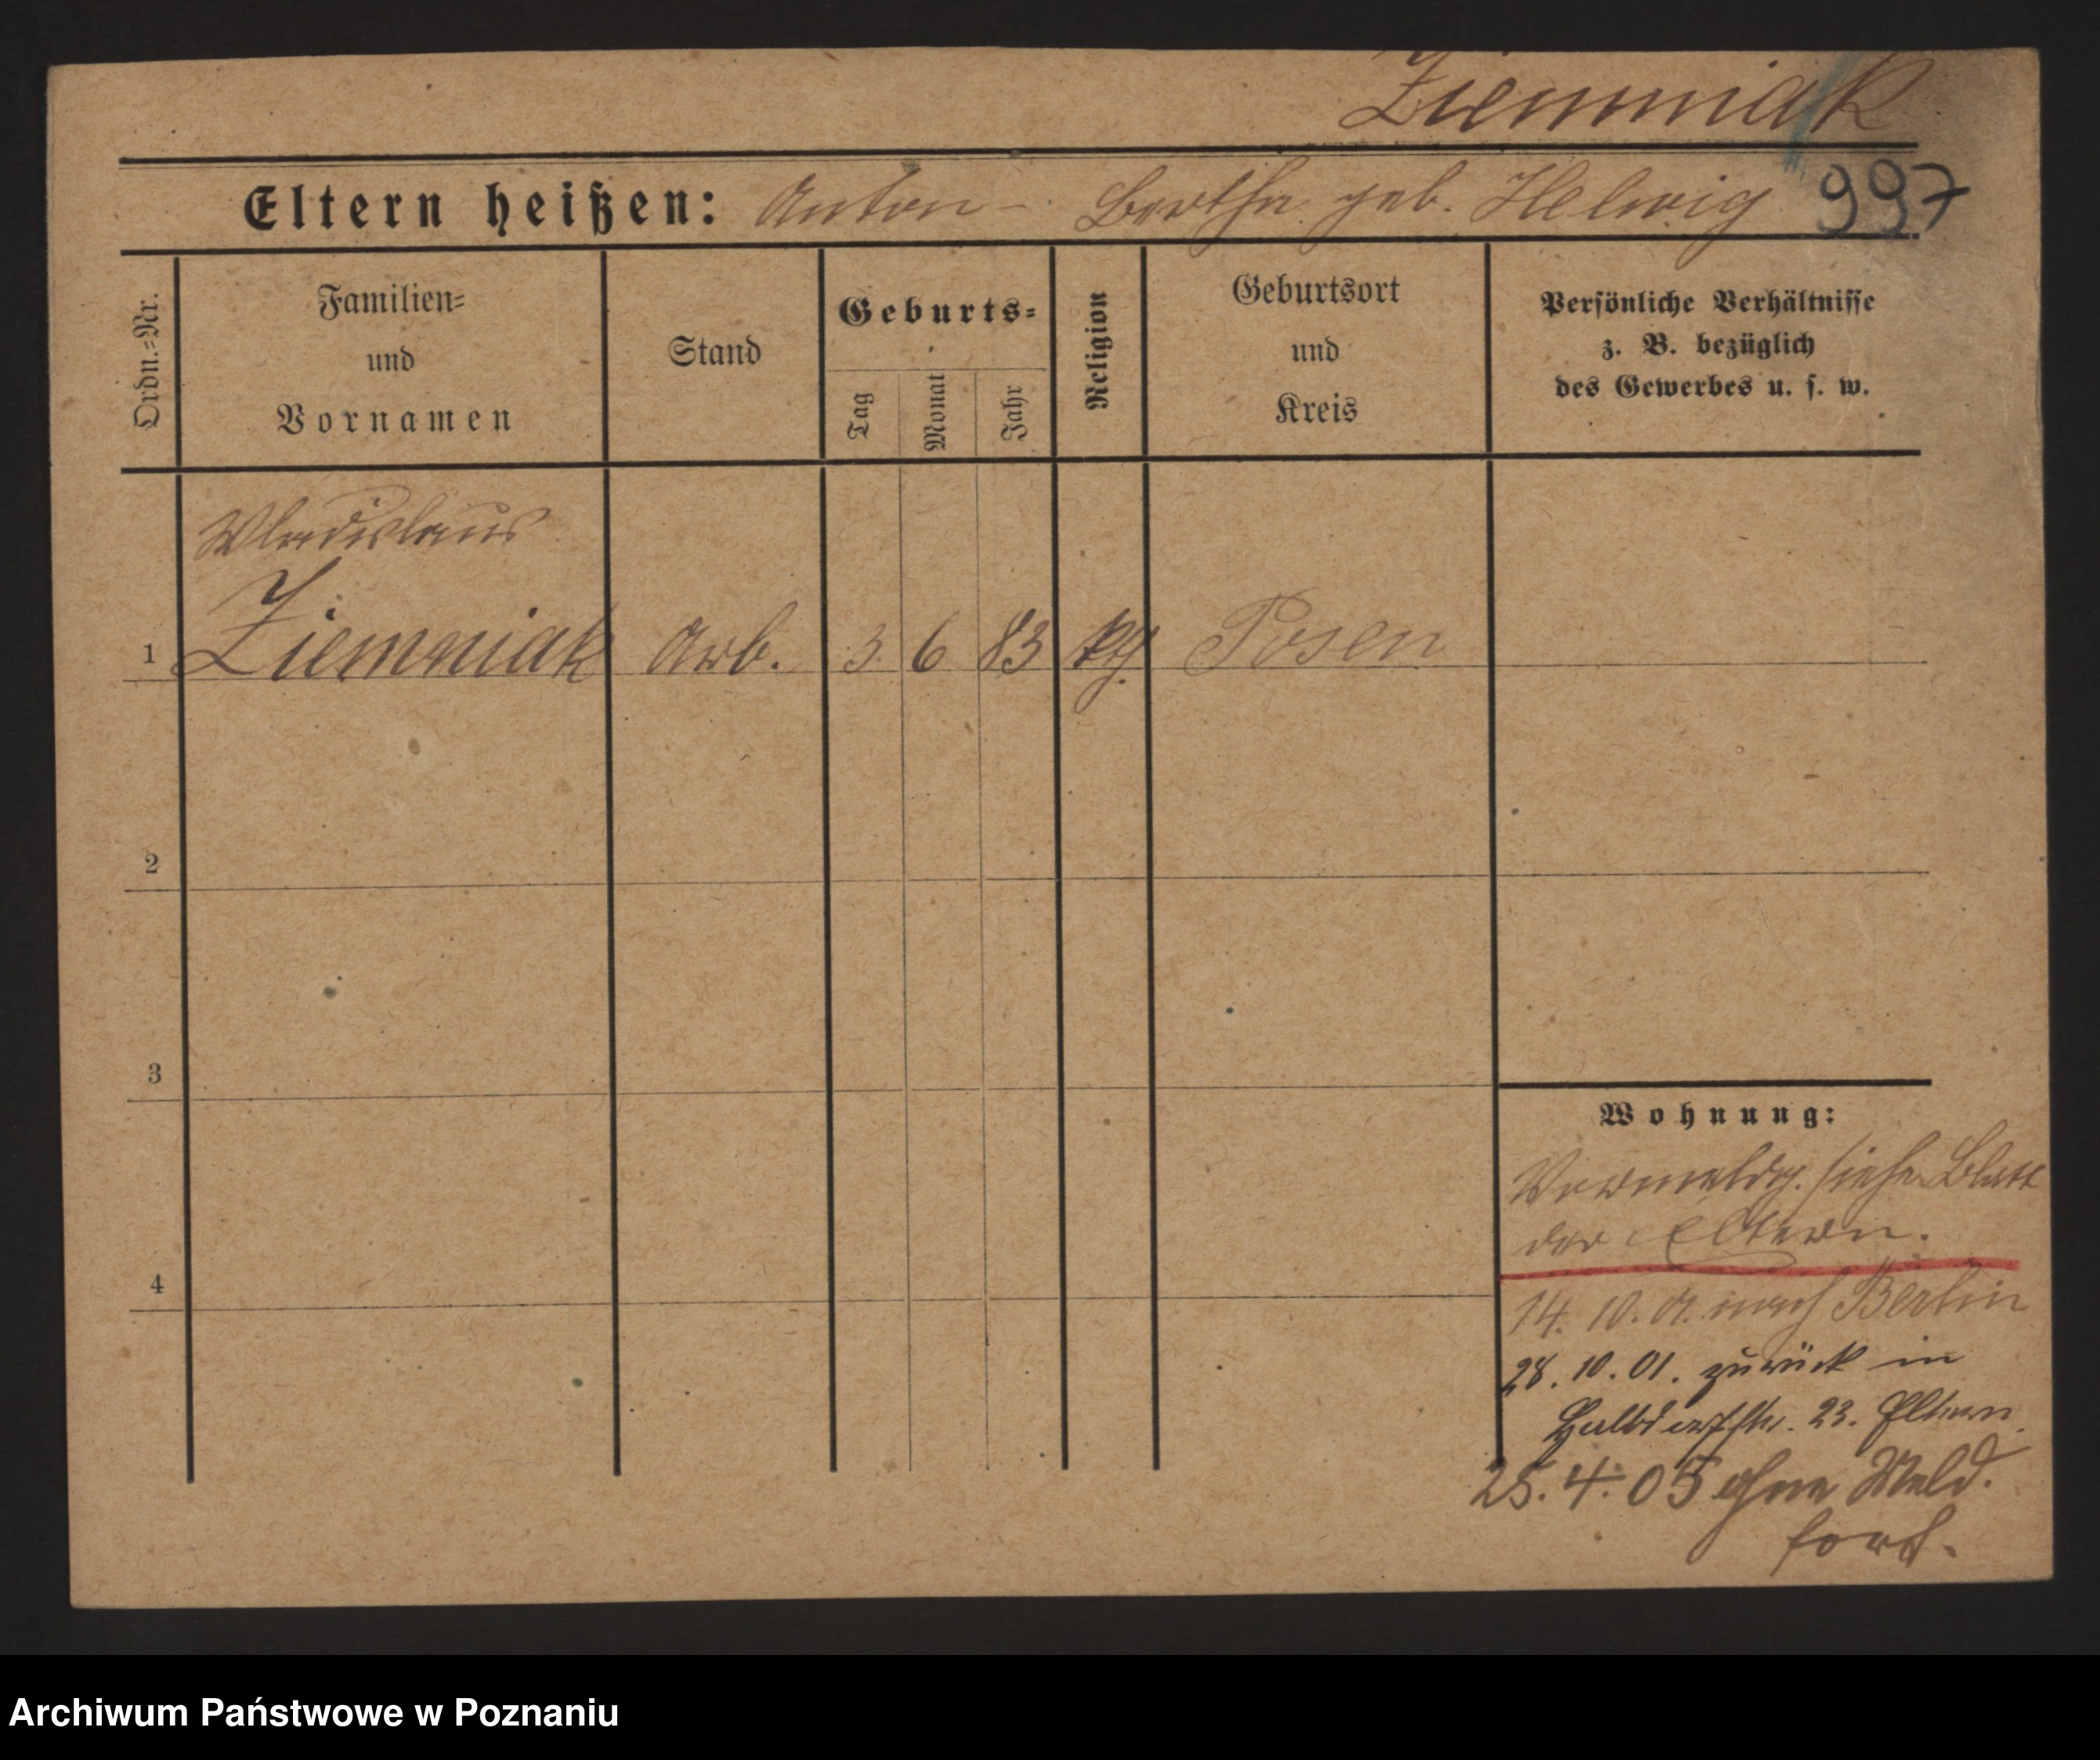 Ziemniak
Eltern heißen: Anton - Bertha geb. Helwig 997
Ordn.=Nr.
Familien=
und
Vornamen
Stand
Geburts=
Tag
Monat
Jahr
Religion
Geburtsort
und
Kreis
Persönliche Verhältnisse
z. B. bezüglich
des Gewerbes u. s. w.
Wladislaus
1 Ziemniak Arb. 3 6 83 Posen
2
3
4
Wohnung:
Vormeldg. siehe Blatt
der Eltern.
14. 10. 01. nach Berlin
28. 10. 01. zurück in
Halbdorfstr. 23. Eltern.
25. 4. 05 ohne Meld.
fort.
Archiwum Państwowe w Poznaniu